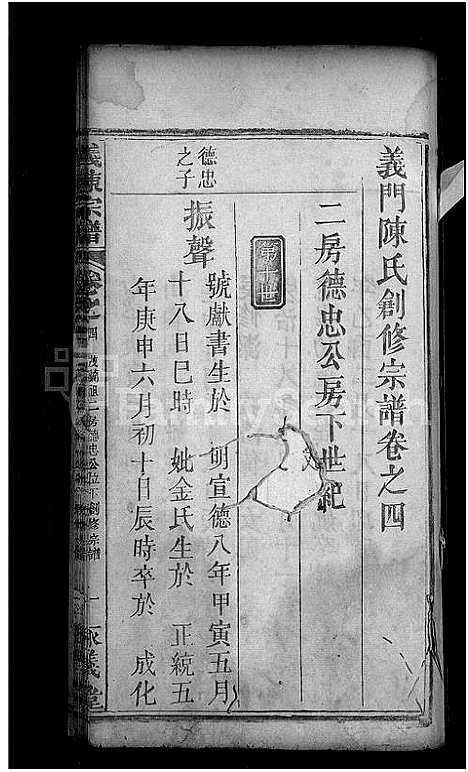 義門陳氏創修宗譜卷之四
二房德忠公房下世紀
第十世
德忠之子
振聲
號獻書生於 明宣德八年甲寅五月
十八日巳時 妣金氏生於 正統五
年庚申六月初十日辰時卒於 成化
義陳宗譜
卷之四
二房德忠公位下創修宗譜
一
義堂
FamilySearch